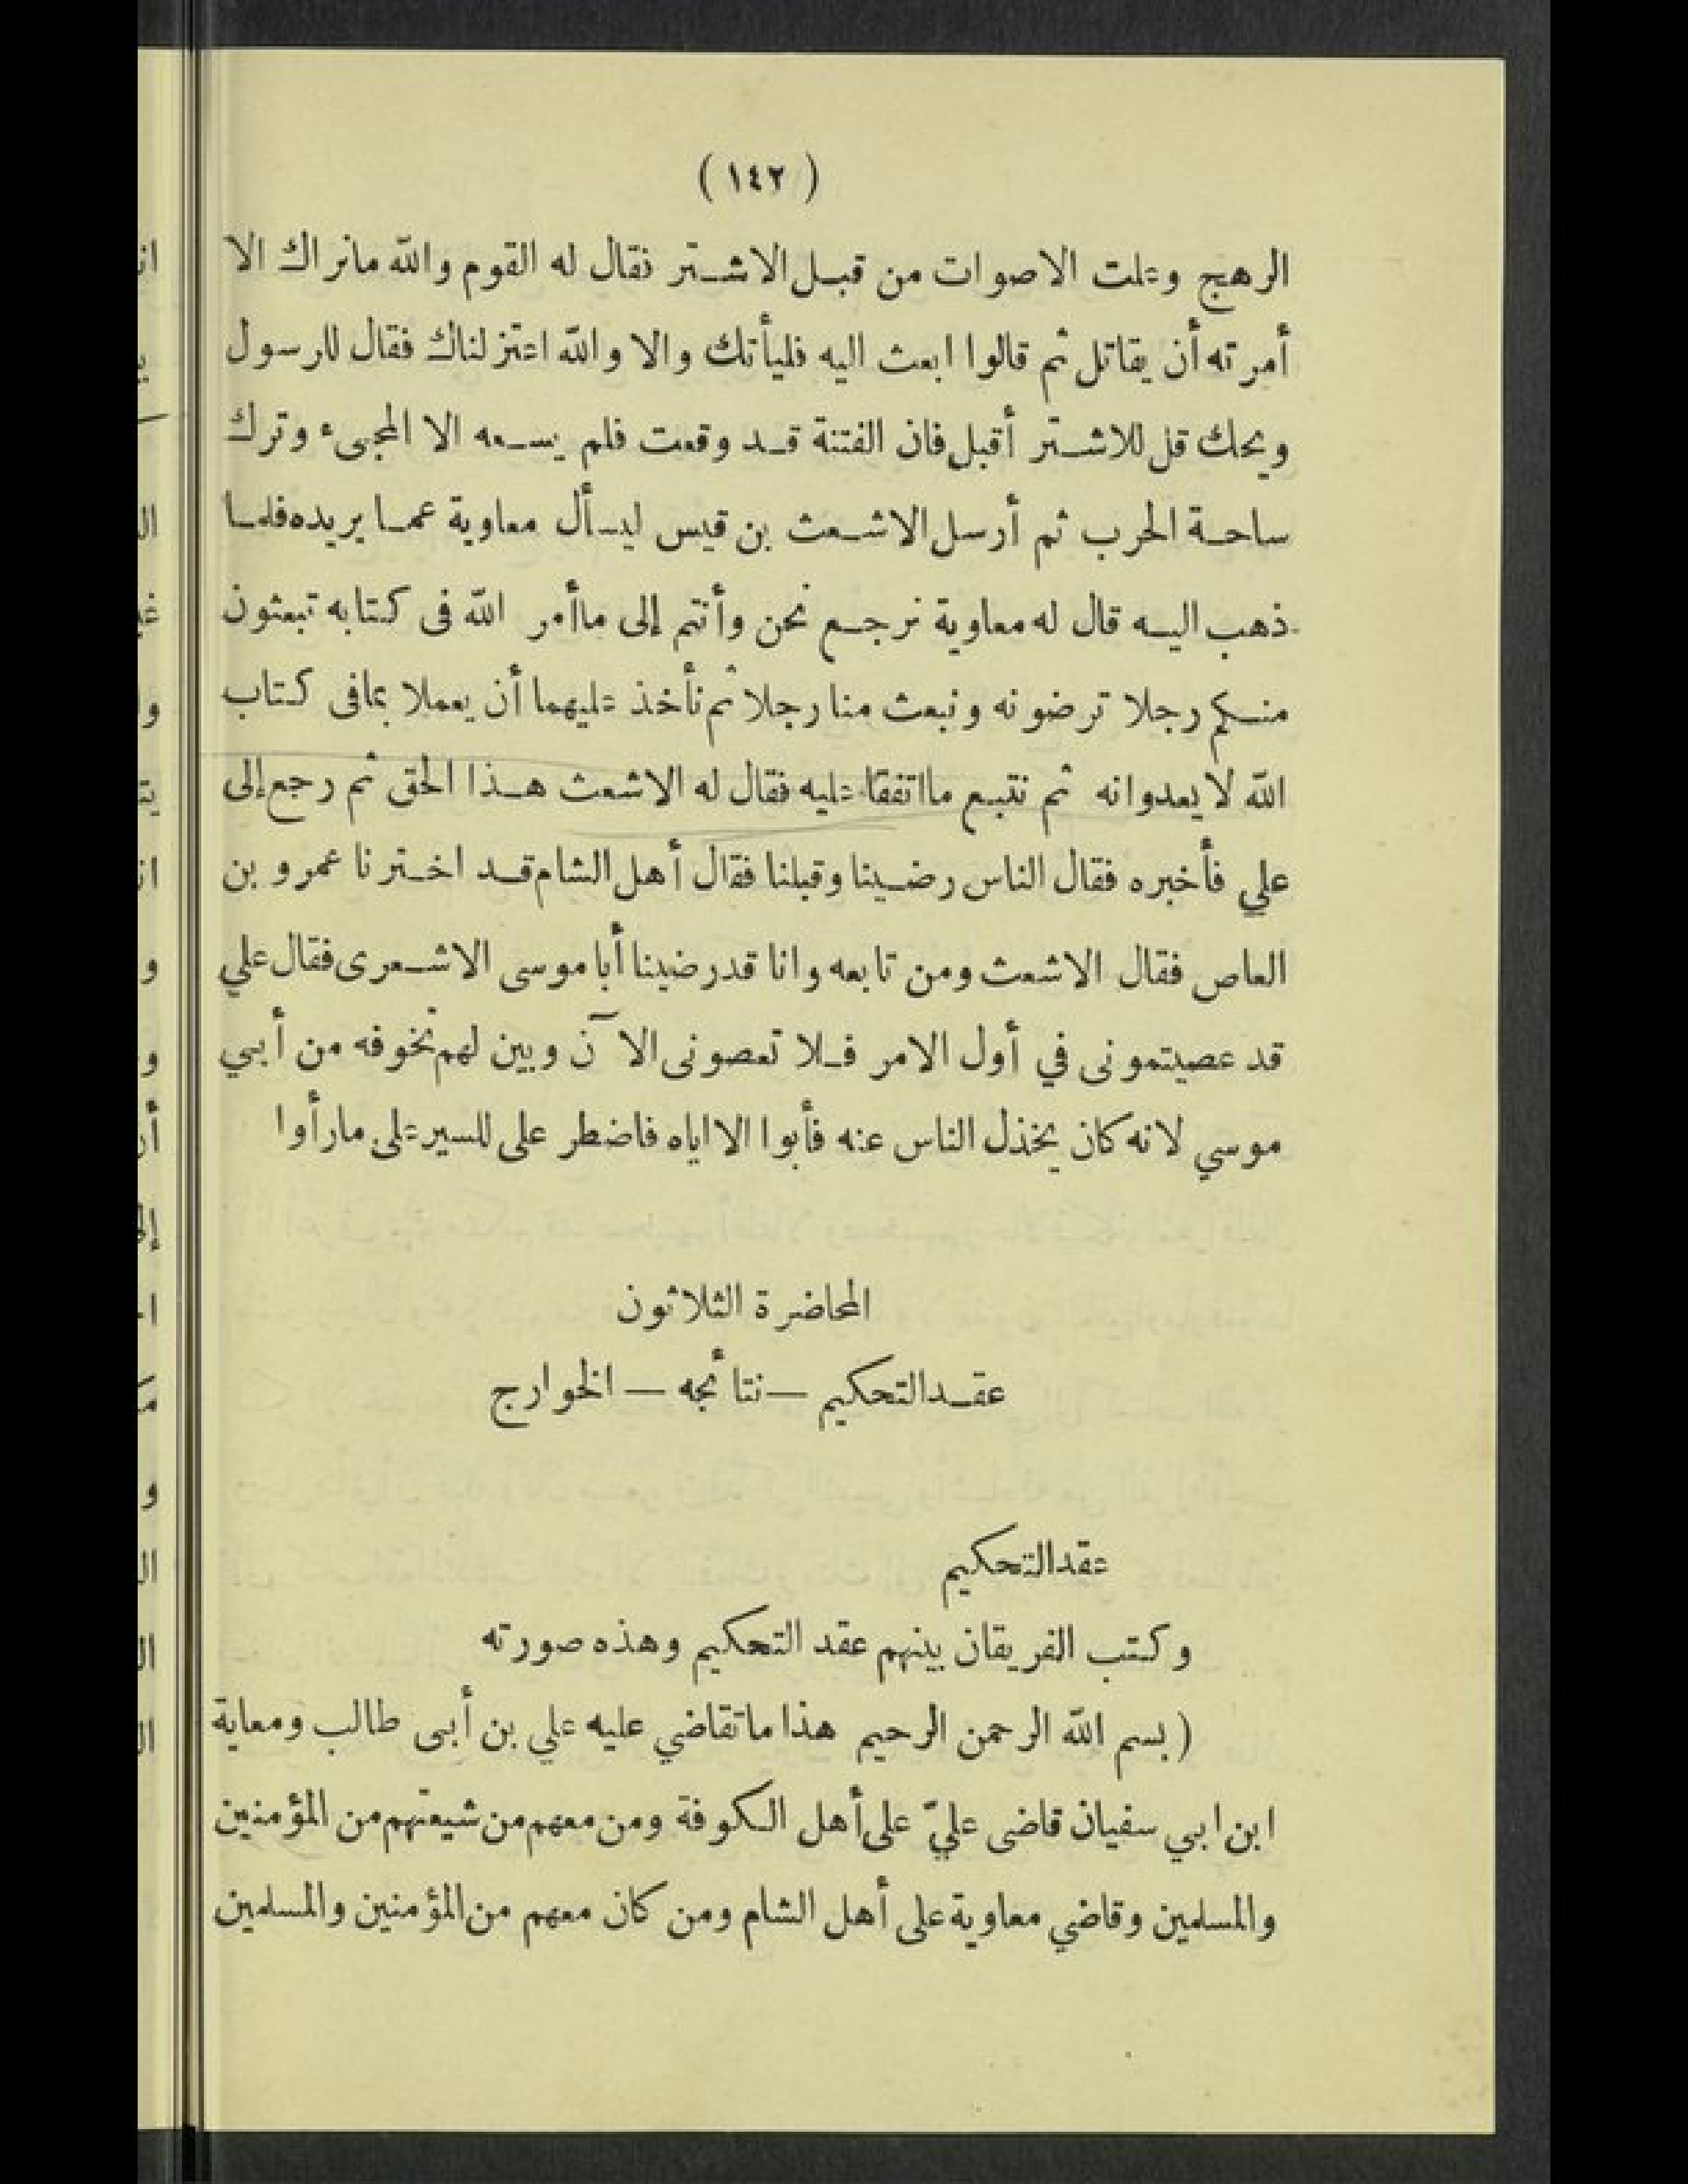 ( ١٤٢ )
الرهج وعلت الاصوات من قبل الاشتر فقال له القوم والله مانراك الا
أمرته أن يقاتل ثم قالوا ابعث اليه فليأتك والا والله اعتزلناك فقال للرسول
ويحك قل للاشتر أقبل فان الفتنة قد وقعت فلم يسعه الا المجىء وترك
ساحة الحرب ثم أرسل الاشعث بن قيس ليسأل معاوية عما يريده فلما
ذهب اليه قال له معاوية نرجع نحن وأنتم إلى ماأمر الله فى كتابه تبعثون
منكم رجلا ترضونه ونبعث منا رجلا ثم نأخذ عليهما أن يعملا بمافى كتاب
الله لا يعدوانه ثم نتبع مااتفقا عليه فقال له الاشعث هذا الحق ثم رجع إلى
علي فأخبره فقال الناس رضينا وقبلنا فقال أهل الشام قد اخترنا عمرو بن
العاص فقال الاشعث ومن تابعه وانا قد رضينا أبا موسى الاشعرى فقال علي
قد عصيتمونى في أول الامر فلا تعصونى الآن وبين لهم تخوفه من أبي
موسي لانه كان يخذل الناس عنه فأبوا الا اياه فاضطر على للسير على مارأوا
المحاضرة الثلاثون
عقد التحكيم — نتائجه — الخوارج
عقد التحكيم
وكتب الفريقان بينهم عقد التحكيم وهذه صورته
( بسم الله الرحمن الرحيم هذا ماتقاضي عليه علي بن أبى طالب ومعاية
ابن ابي سفيان قاضى عليّ على أهل الكوفة ومن معهم من شيعتهم من المؤمنين
والمسلمين وقاضي معاوية على أهل الشام ومن كان معهم من المؤمنين والمسلمين